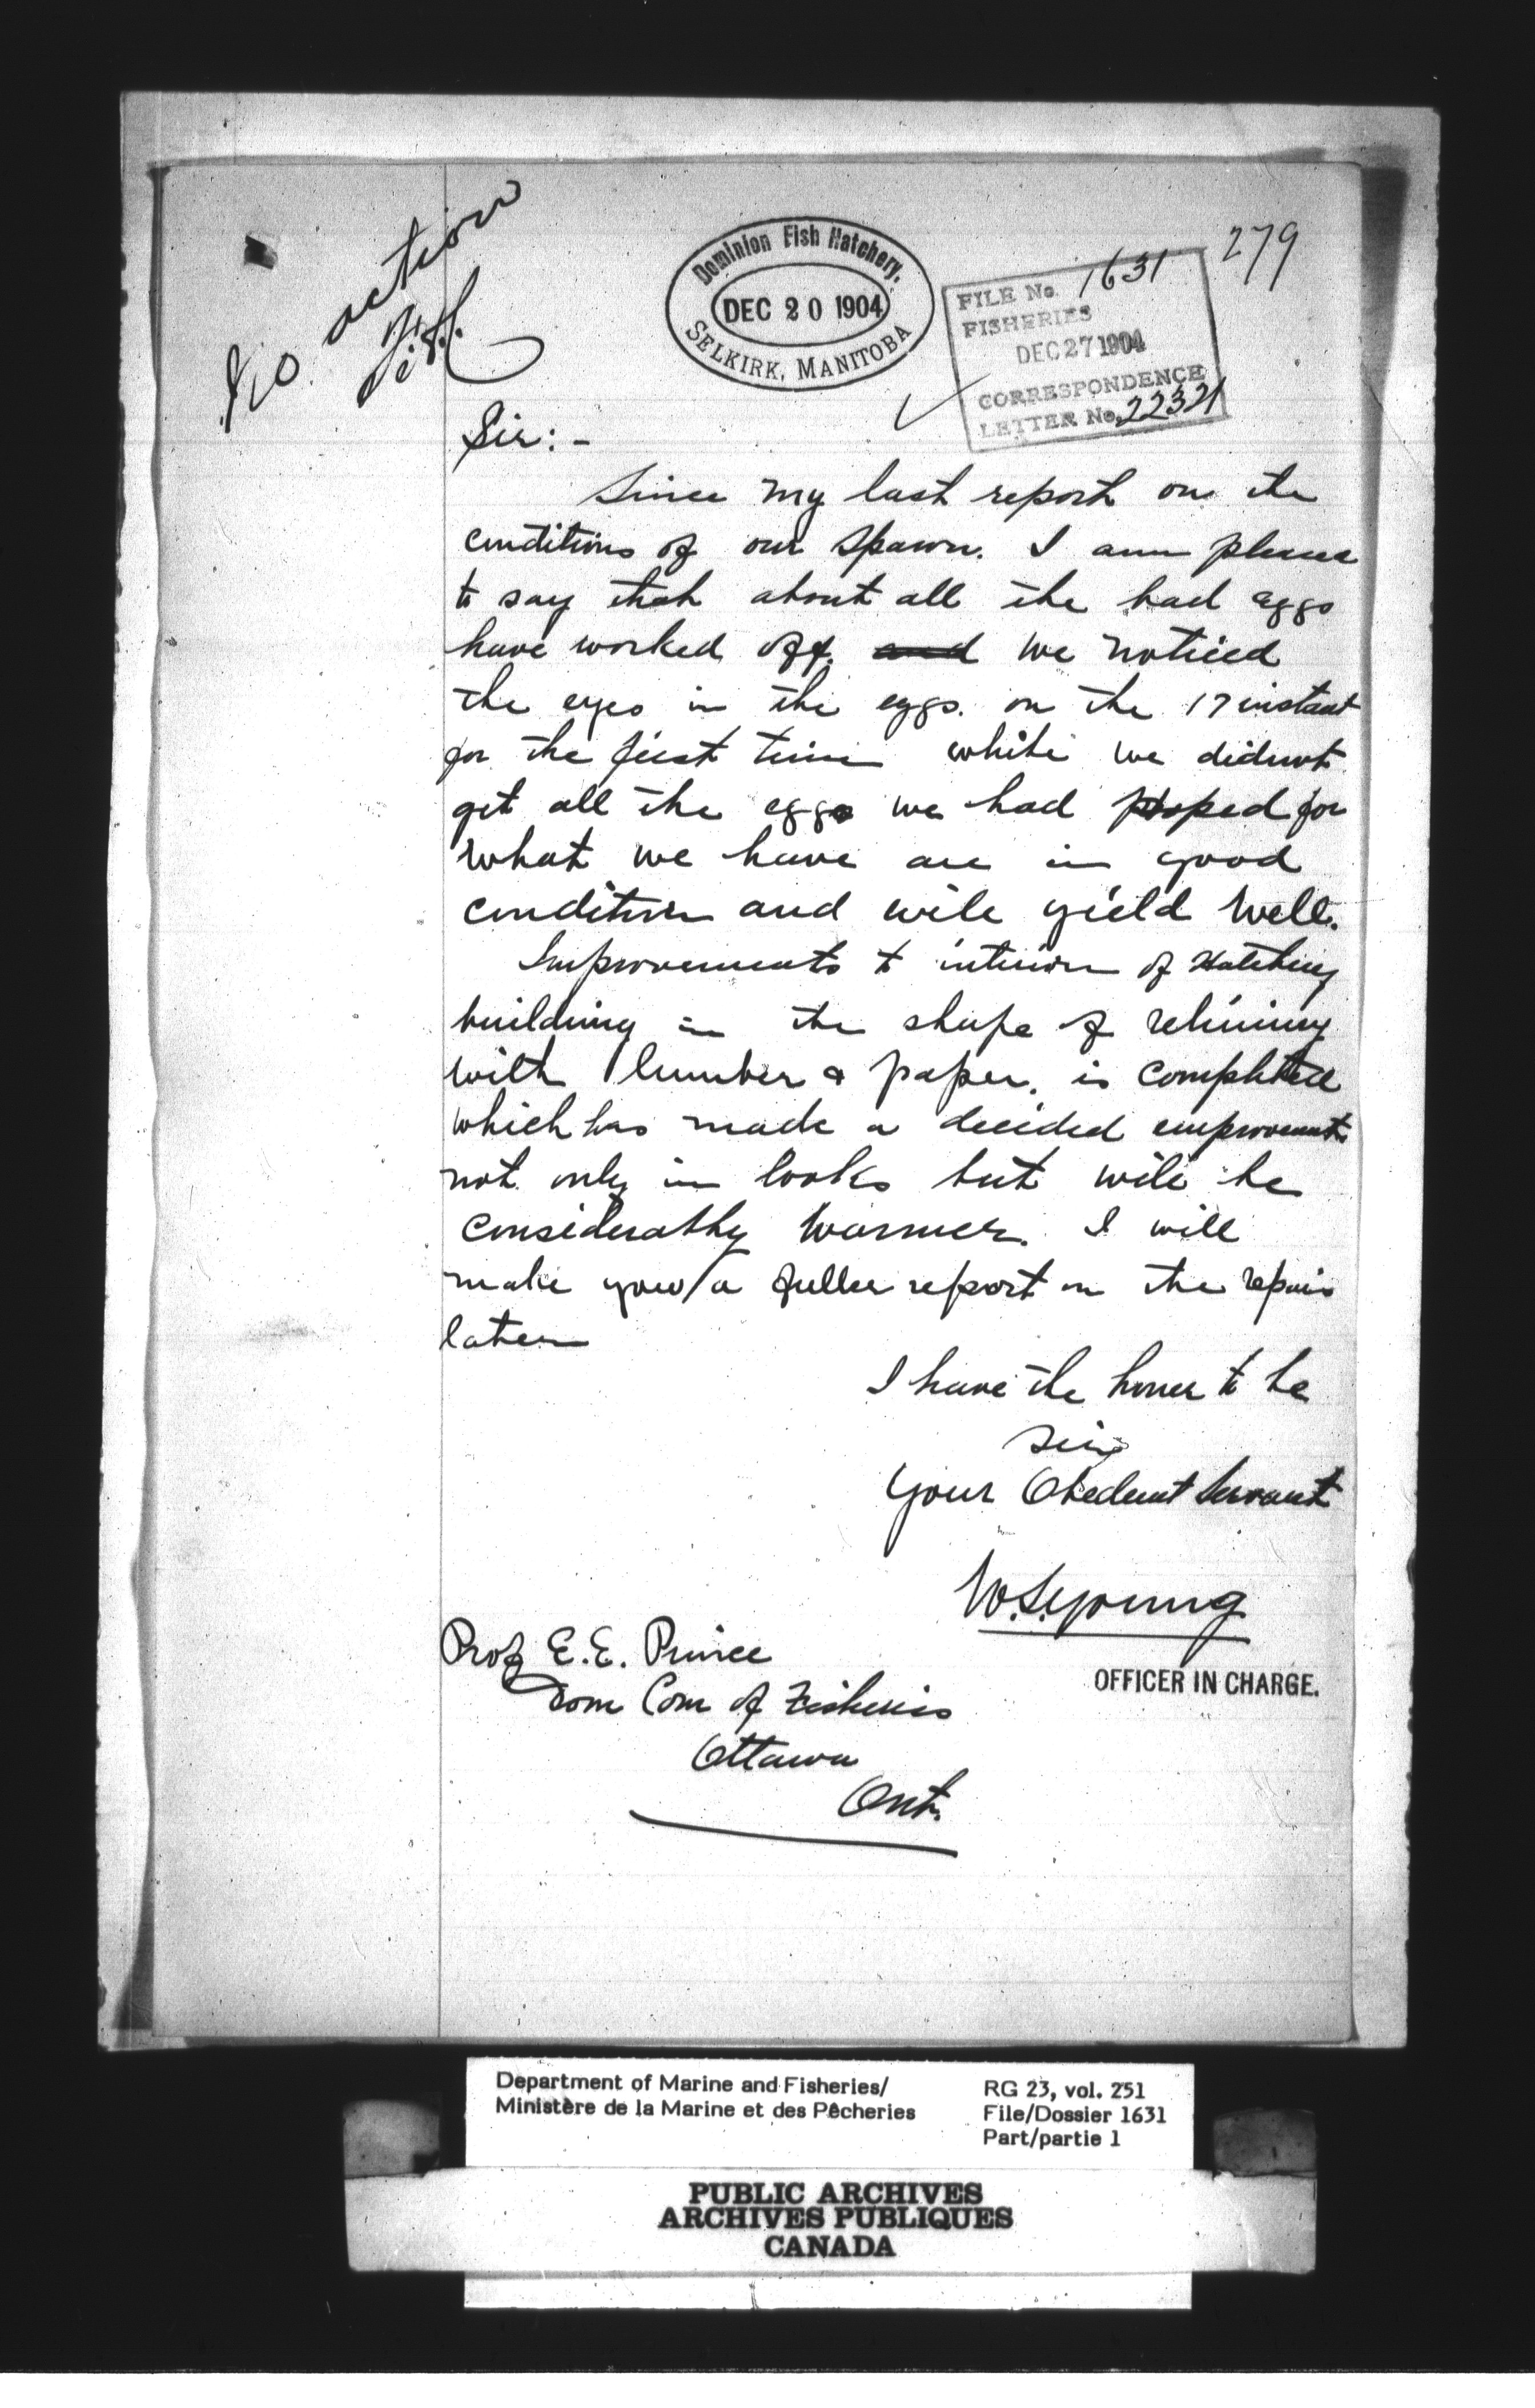 No action
Dominion Fish Hatchery.
DEC 20 1904
SELKIRK, MANITOBA
279
FILE No. 1631
FISHERIES
DEC 27 1904
CORRESPONDENCE
LETTER No. 22321
Sir:-
Since my last report on the
conditions of our spawn. I am pleased
to say that about all the bad eggs
have worked off. and we noticed
the eyes in the eggs. on the 17 instant
for the first time while we didnot
get all the eggs we had hoped for
what we have are in good
condition and will yield well.
Improvements to interior of Hatching
building in the shape of relining
with lumber & paper. is completed
which has made a decided emprovement
not only in looks but will be
considerably warmer. I will
make you a fuller report on the repairs
later
I have the honor to be
Sir
Your Obedient Servant
W.S. Young
OFFICER IN CHARGE.
Prof E.E. Prince
Dom Com of Fisheries
Ottawa
Ont.
Department of Marine and Fisheries/
Ministère de la Marine et des Pêcheries
RG 23, vol. 251
File/Dossier 1631
Part/partie 1
PUBLIC ARCHIVES
ARCHIVES PUBLIQUES
CANADA